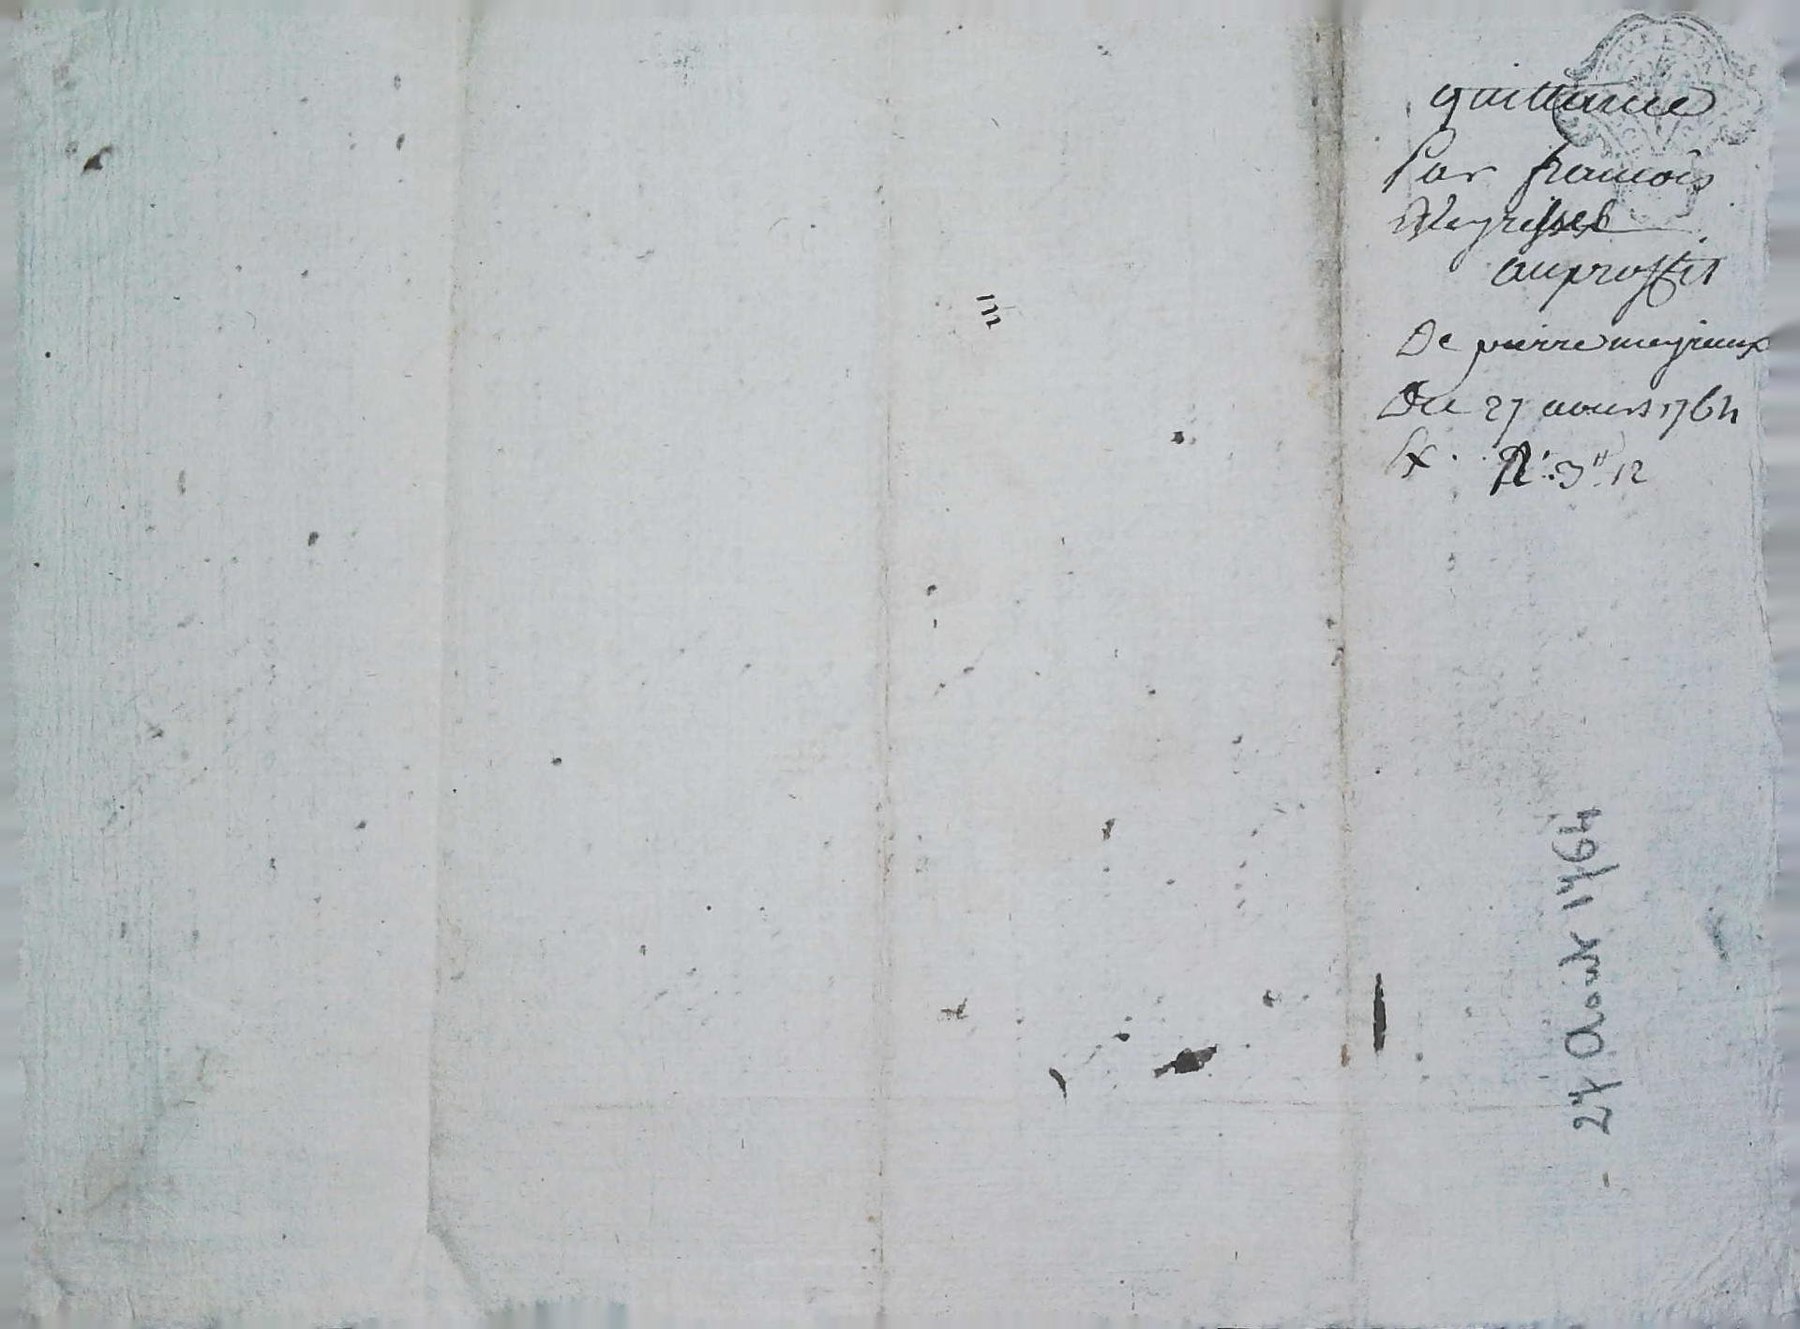 quittance
par francois
au proffit
De pierre meyrieux
Du 27 aoust 1764
R: 3# 12
27 Aout 1764